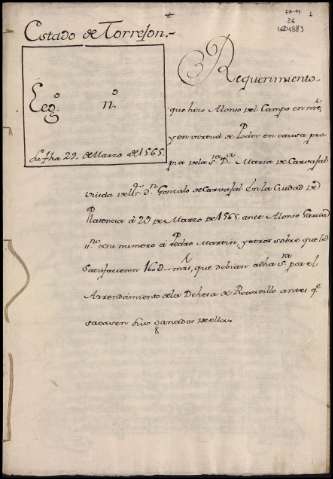 Estado de Torrejon.
Leg.º n.º
de fha 29. de Marzo de 1565.
Requerimiento
que hizo Alonso del Campo en nre
y en virtud de Poder en causa pro
pia de la S.ª D.ª Maria de Carvajal
viuda del S.r D.n Gonzalo de Carvajal en la Ciudad de
Plasencia á 29 de Marzo de 1565. ante Alonso
ss.no de su numero á Pedro Martin, y otros sobre que le
satisfaciesen mrs, que debian a dha S.ra por el
Arrendamiento de la Dehesa de antes q.e
sacasen sus ganados de ella.
8